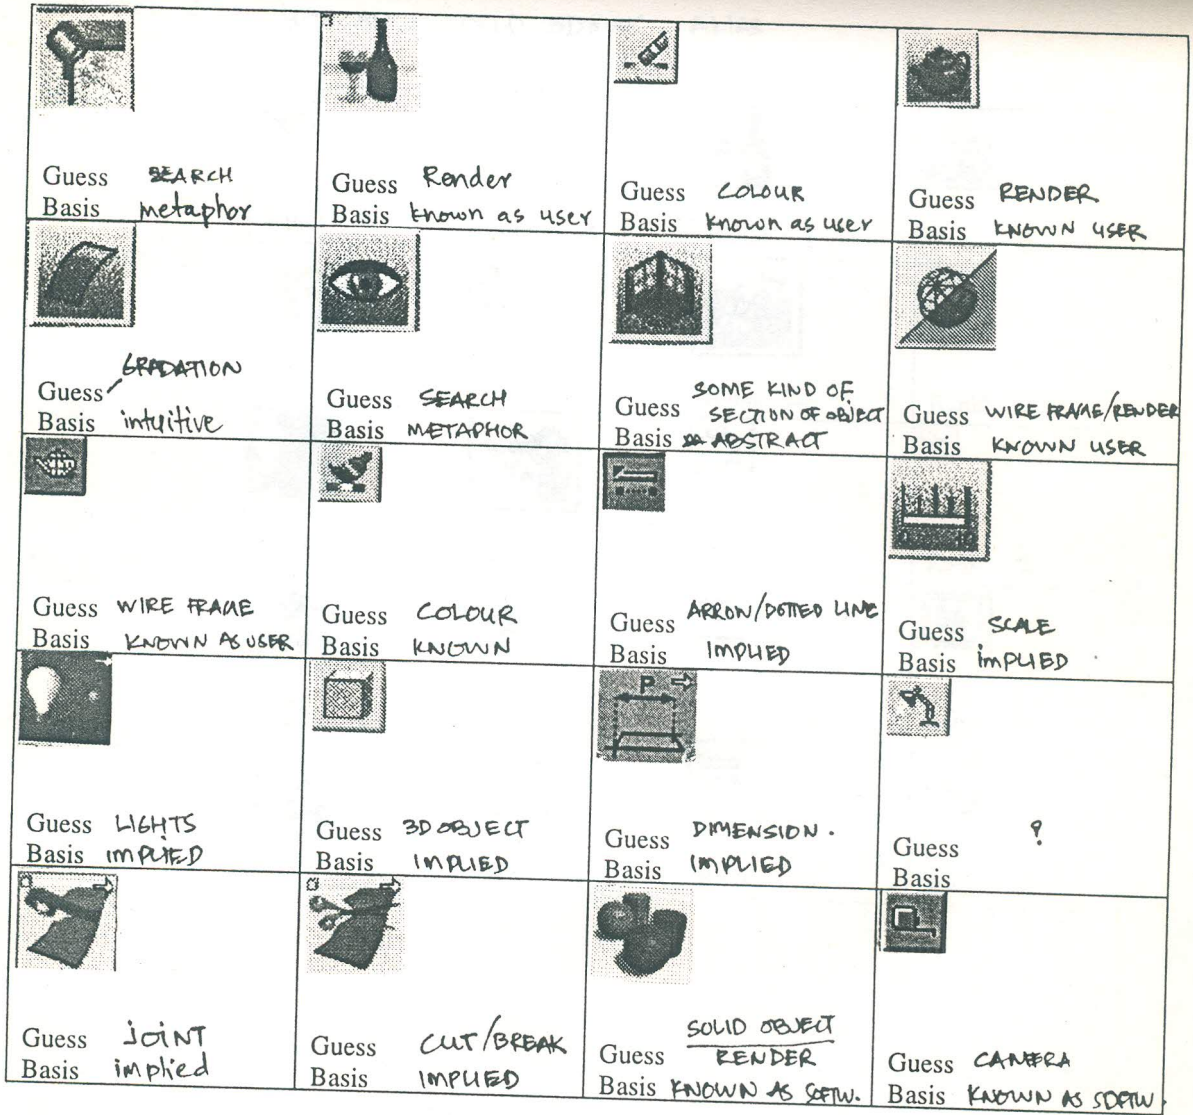 Guess SEARCH
Basis metaphor
Guess Render
Basis known as user
Guess COLOUR
Basis known as user
Guess RENDER
Basis KNOWN USER
Guess GRADATION
Basis intuitive
Guess SEARCH
Basis METAPHOR
SOME KIND OF
Guess SECTION OF OBJECT
Basis ABSTRACT
Guess WIRE FRAME/RENDER
Basis KNOWN USER
Guess WIRE FRAME
Basis KNOWN AS USER
Guess COLOUR
Basis KNOWN
Guess ARROW/DOTTED LINE
Basis IMPLIED
0 10
Guess SCALE
Basis IMPLIED
Guess LIGHTS
Basis IMPLIED
Guess 3D OBJECT
Basis IMPLIED
P
Guess DIMENSION.
Basis IMPLIED
?
Guess
Basis
Guess JOINT
Basis implied
Guess CUT/BREAK
Basis IMPLIED
SOLID OBJECT
Guess RENDER
Basis KNOWN AS SOFTW.
Guess CAMERA
Basis KNOWN AS SOFTW.